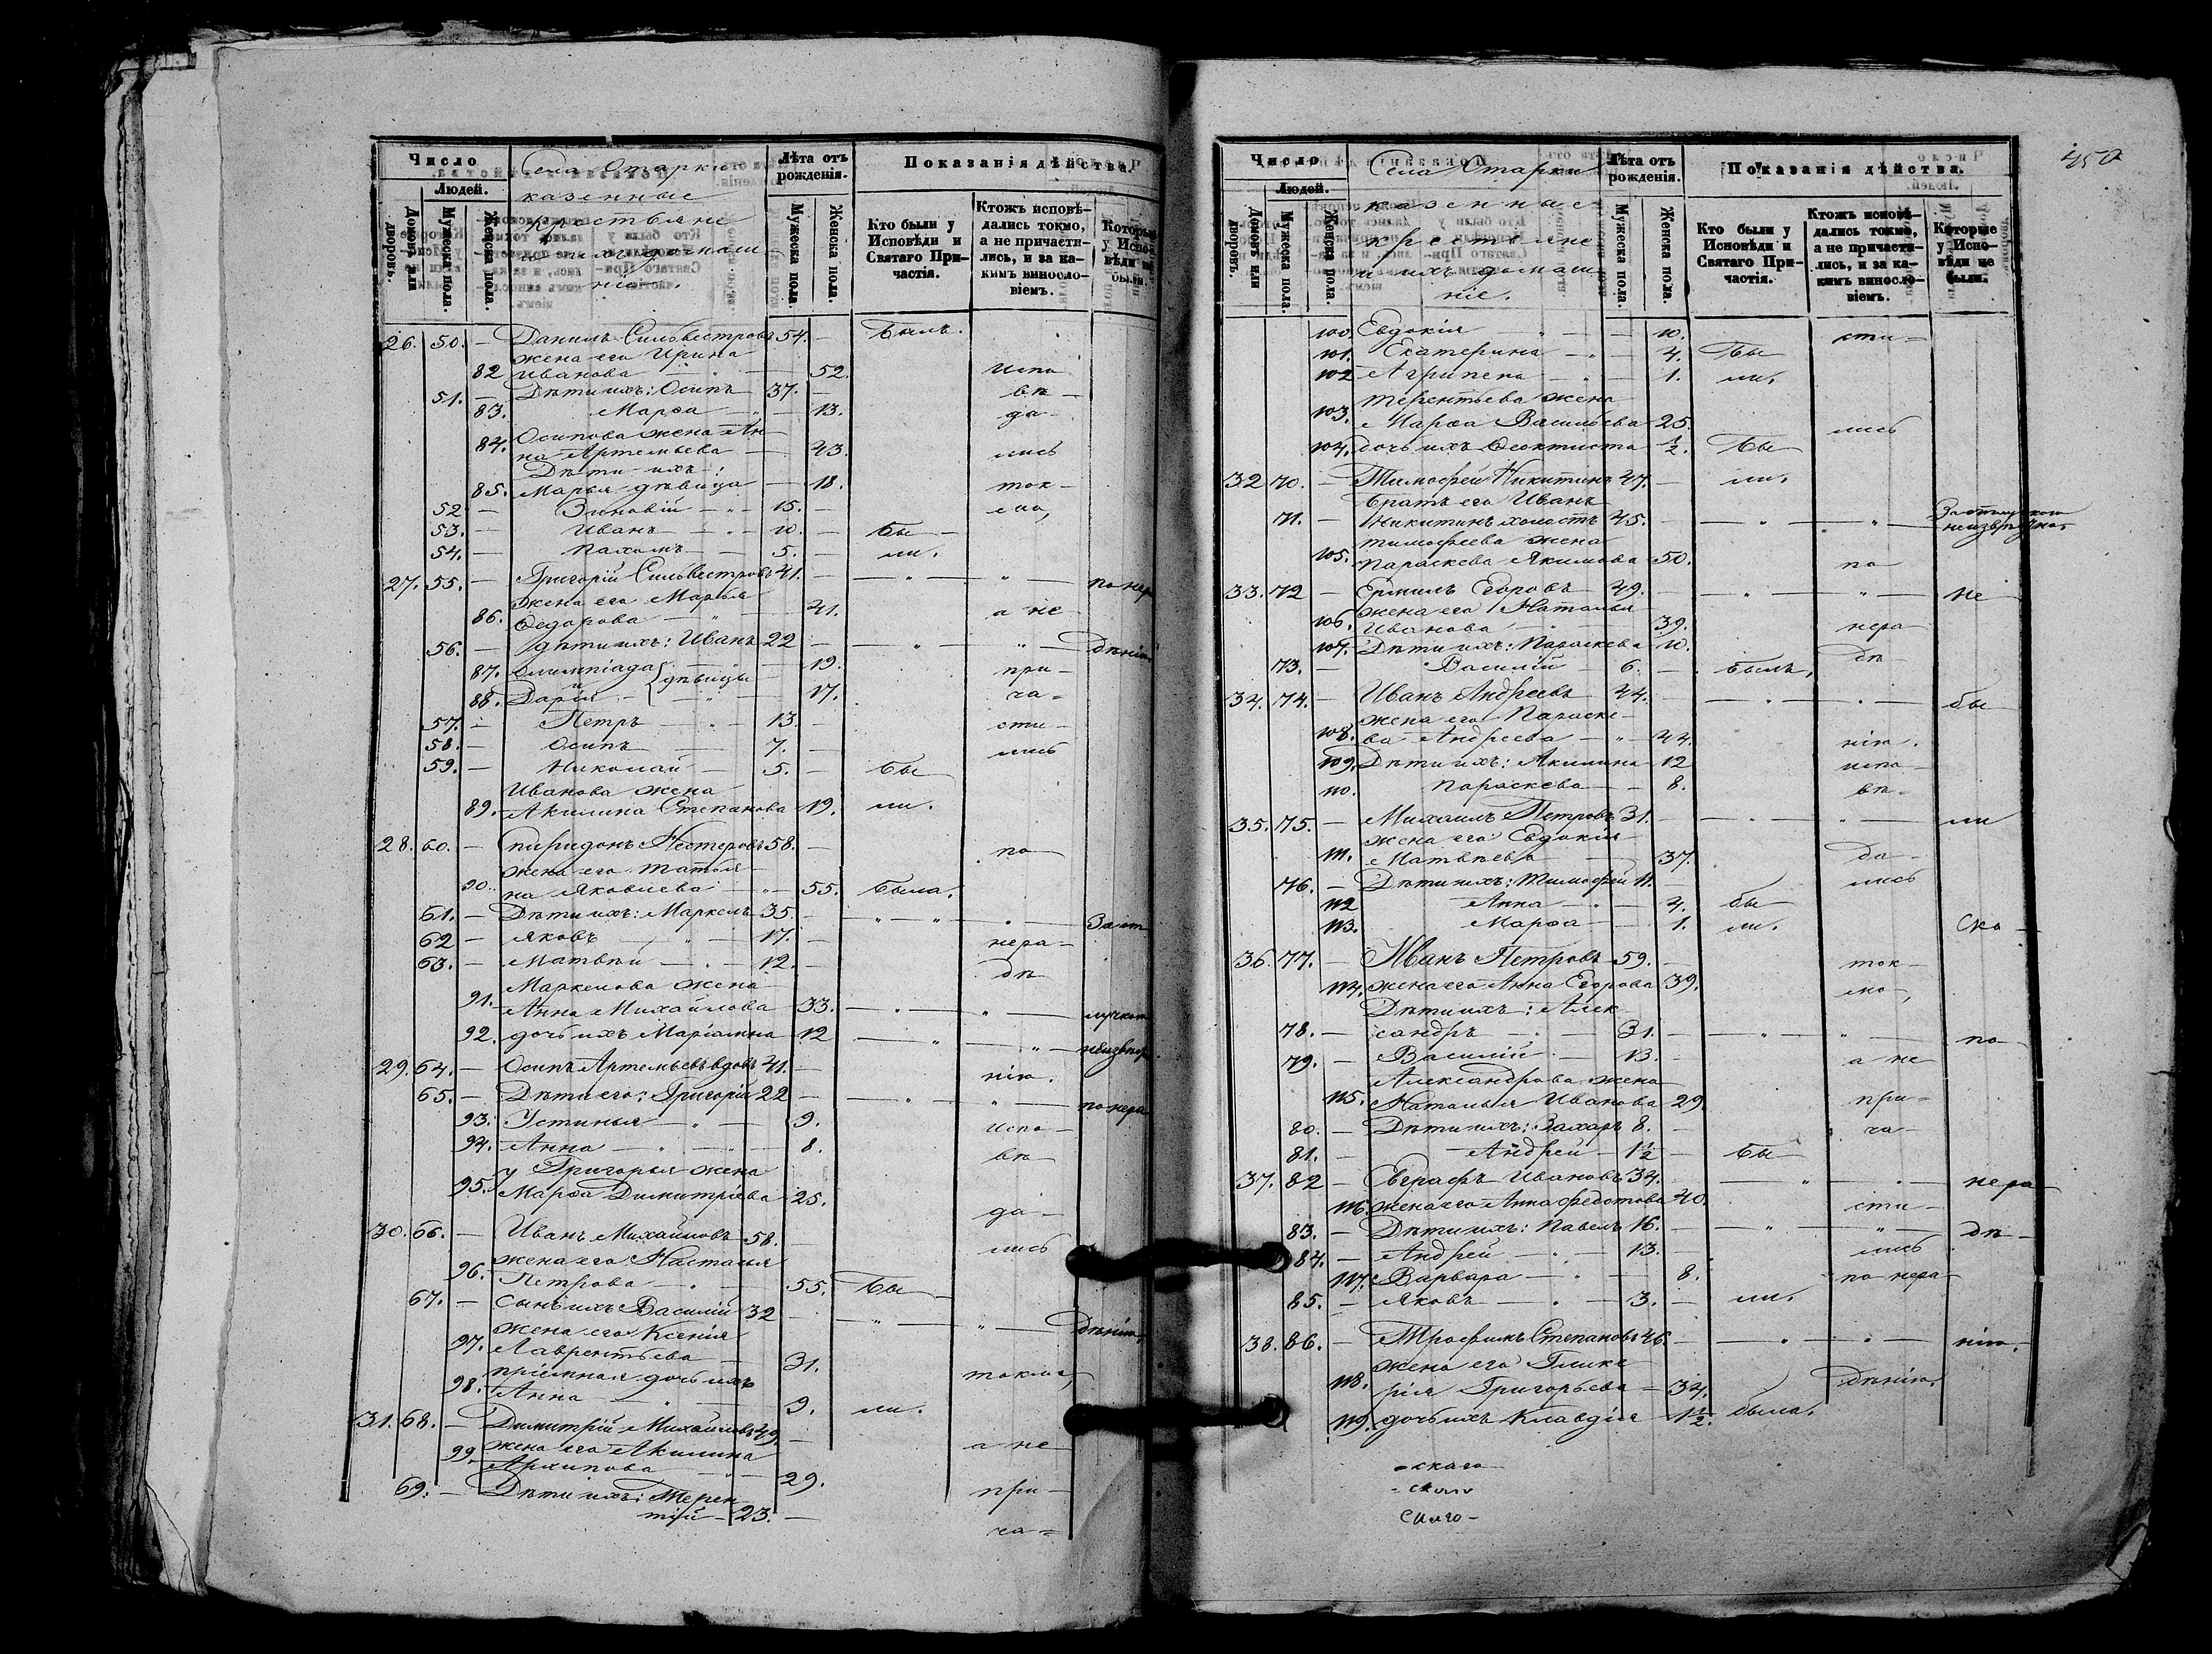 Число
Людей.
Домовъ или дворовъ.
Мужеска пола.
Женска пола.
Села Отарки
казенные
крестьяне
и ихъ домаш
ніе.
Лѣта отъ рожденія.
Мужеска пола.
Женска пола.
Показанія дѣйства.
Кто были у Исповѣди и Святаго Причастія.
Ктожъ исповѣдались токмо, а не причастились, и за какимъ винословіемъ.
Которые у Исповѣди не были.
26. 50. — Данилъ Сильвестровъ 54. — Былъ.
жена его Ирина
82 Иванова — 52. испо
51. — Дѣти ихъ: Осипъ 37. — вѣ—
83. Марѳа — 13. да—
Осипова жена Ан
84. на Артемьева — 43. лись
Дѣти ихъ:
85. Марья дѣвица — 18. ток—
52 — Зиновій — 15. — мо,
53. — Иванъ — 10. — Бы—
54. — Пахомъ — 5. — ли.
27. 55. — Григорій Сильвестровъ 41. — " — " — по нер
жена его Марья
86. Ѳедорова — 41. а не
56. — Дѣти ихъ: Иванъ 22 — " — " — дѣнію
87. Олимпіада — 19. при—
и } дѣвицы
88. Дарія — 17. ча=
57. — Петръ — 13. — сти—
58. — Осипъ — 7. — лись
59. — Николай — 5. — Бы
Иванова жена
89. Акилина Степанова 19. ли.
28. 60. — Спиридонъ Нестеровъ 58. — по
жена его Татья
90. на Яковлева — 55. Была.
61. — Дѣти ихъ: Маркелъ 35. — " — " — За от
62 — Яковъ — 17. — нера—
63. — Матвѣй — 12. — дѣ
Маркелова жена
91. Анна Михайлова 33. — " — " — лучкою
92. дочь ихъ Маріамна 12 — " — " — неизвѣст.
29. 64. — Осипъ Артемьевъ вдовъ 41. — нію.
65. — Дѣти его: Григорій 22 — " — " — по нера
93. Устинья — 9. испо—
94. Анна — 8. вѣ
у Григорья жена
95. Марѳа Димитріева 25. да—
30. 66. — Иванъ Михайловъ 58. — лись
жена его Настасья
96. Петрова — 55. Бы—
67. — Сынъ ихъ Василій 32 — " — " — дѣнію,
жена его Ксенія
97. Лаврентьева — 31. токмо,
пріемная дочь ихъ
98. Анна — 9. ли.
31. 68. — Димитрій Михайловъ 49. —
жена его Акилина а не
99. Архипова — 29.
69. — Дѣти ихъ: Терен при—
тій — 23. — ча=
450
Число
Людей.
Домовъ или дворовъ.
Мужеска пола.
Женска пола.
Села Отарки
казенные
крестьяне
и ихъ домаш
ніе.
Лѣта отъ рожденія.
Мужеска пола.
Женска пола.
Показанія дѣйства.
Кто были у Исповѣди и Святаго Причастія.
Ктожъ исповѣдались токмо, а не причастились, и за какимъ винословіемъ.
Которые у Исповѣди не были.
100. Евдокія " — 10. сти—
101. Екатерина — 4. бы
102 Агрипена — 1. ли.
Терентьева жена
103. Марѳа Васильева 25. лись
104. дочь ихъ Ѳеоктиста ½. Бы
32 70. — Тимофей Никитинъ 47. — ли.
Братъ его Иванъ
71. — Никитинъ холостъ 45. — " — " — За отлучкою неизвѣстно.
Тимофеева жена
105. Параскева Якимова 50. по
33. 72 — Ермилъ Егоровъ 49. — " — " — не
жена его Наталья
106. Иванова — 39. нера
107. Дѣти ихъ: Параскева 10.
73. — Василій — 6. — былъ. дѣ
34. 74. — Иванъ Андреевъ 44. — " — " — бы
жена его Параске—
108. ва Андреева — 44. нію.
109. Дѣти ихъ: Акилина 12 испо
110. Параскева — 8. вѣ—
35. 75. — Михаилъ Петровъ 31. — " — " — ли
жена его Евдокія
111. Матвѣева — 37. да—
76. — Дѣти ихъ: Тимофей 11. — лись
112 Анна — 4. бы—
113. Марѳа — 1. ли. Ско—
36. 77. — Иванъ Петровъ 59. — ток—
114. жена его Анна Егорова 39. мо,
Дѣти ихъ: Алек
78. — сандръ — 31. — " — " — по
79. — Василій — 13. — а не
Александрова жена
115. Наталья Иванова 29. при=
80. — Дѣти ихъ: Захаръ 8. — ча—
81. — Андрей — 1½ — бы
37. 82 — Евграфъ Ивановъ 34. — " — " — нера
116. жена его Анна Федотова 40. сти—
83. — Дѣти ихъ: Павелъ 16. — " — " — дѣ—
84. — Андрей — 13. — лись
117. Варвара — 8. по нера—
85. — Яковъ — 3. — ли.
38. 86. — Трофимъ Степановъ 46. — " — " — нію.
жена его Глике
118. рія Григорьева = 34. дѣнію.
119. дочь ихъ Клавдія 1½. была.